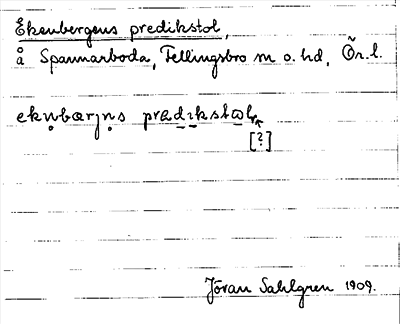 Ekenbergens predikstol,
å Spannarboda, Fellingsbro sn o. hd, Ör. l.
eknbærjns predikstol
[?]
Jöran Sahlgren 1909.